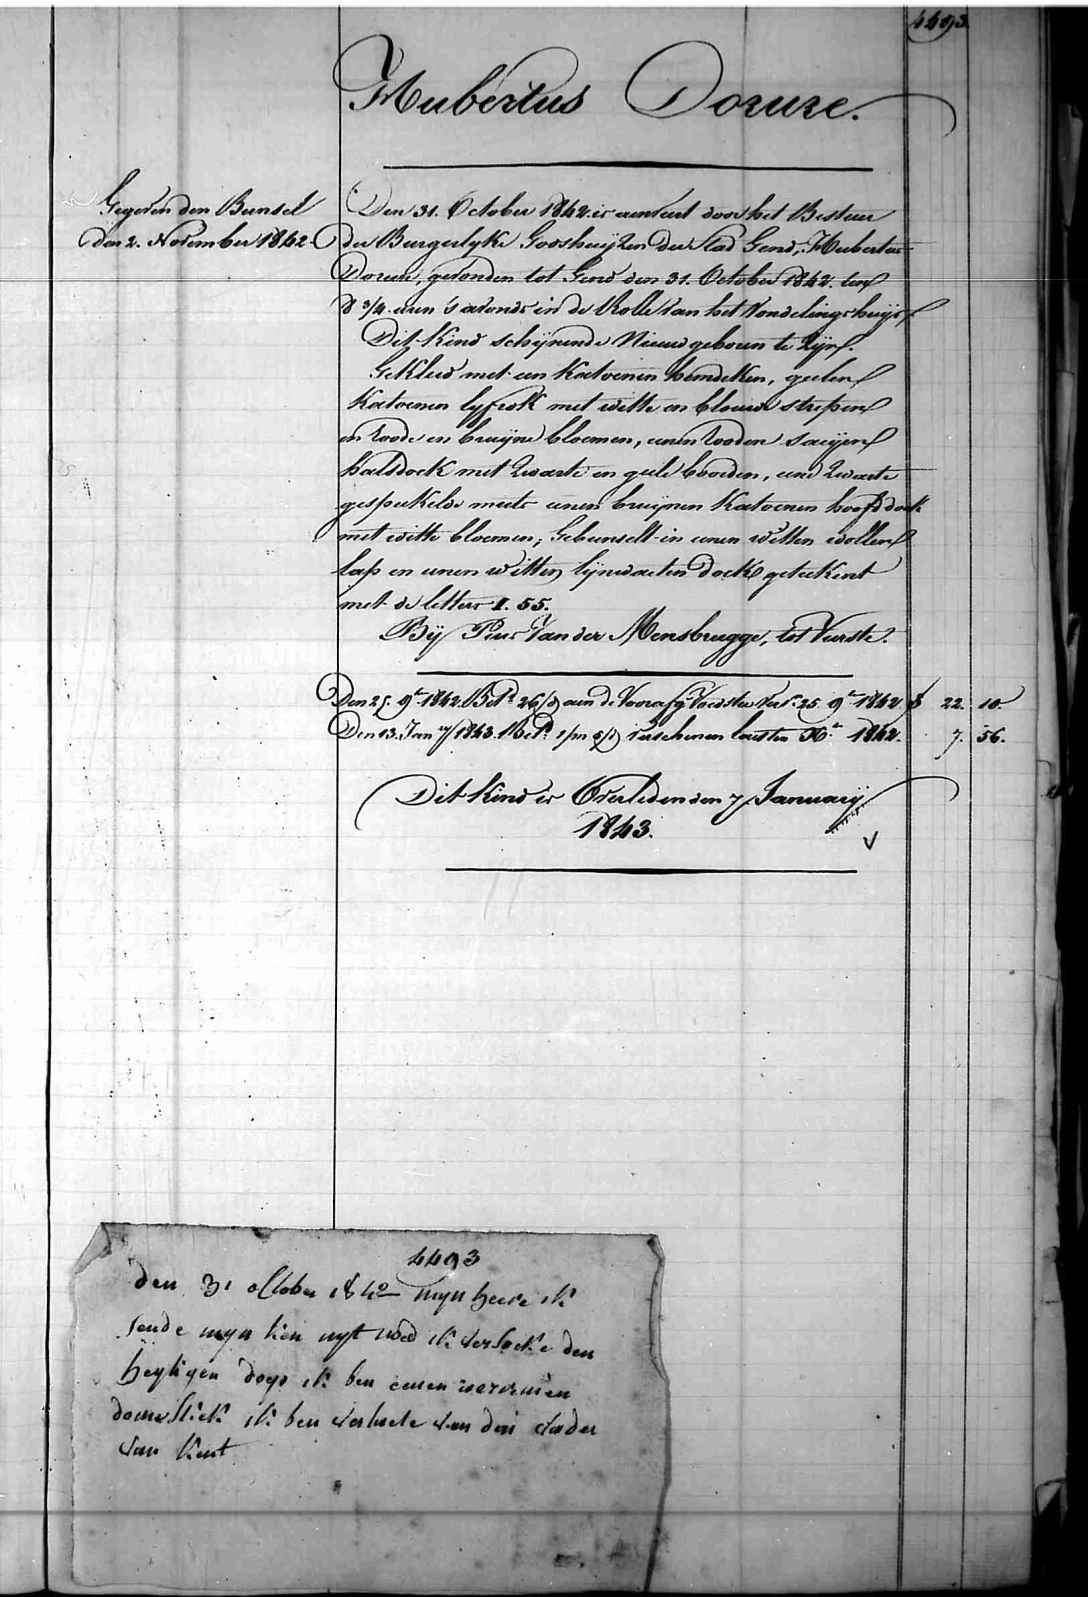 4493.
Hubertus Dorure.
Gegeven den Bunsel
den 2. November 1842
Den 31. October 1842. is aenveert door het Bestuur
der Burgerlyke Godshuijzen der Stad Gend, Hubertus
Dorure, gevonden tot Gend den 31. October 1842. ten
8 3/4 uren 's avonds in de Rolle van het Vondelingshuijs,
Dit Kind schijnende Nieuwgeboren te Zijn.
Gekleed met een Katoenen hemdeken, geelen
Katoenen lyfrok met witte en blouwe strepen
en roode en bruijne bloemen, eenen rooden saeijen
halsdoek met Zwarte en geele boorden, eene Zwarte
gespekelde muts eenen bruijnen Katoenen hoofddoek
met witte bloemen; Gebunselt in eenen witten wollen
lap en eenen witten lijnwaeten doek geteekent
met de letters I. 55.
Bij Pieer Van der Mensbrugge, tot Vurste.
Den 25. 9r 1842. Betd 26/ aen de Voorafg. Voedster 25. 9r 1842 f 22. 10.
Den 13. Jany 1843. verschenen lausten Xr 1842. 7. 56.
Dit Kind is Overleden den 7 January
1843.
4493
den 31 october 1842 myn heere ik
sende myn kien uyt nood ik versoeke den
heyligen doops ik ben eenen
domestiek ik ben verlaete van den vader
van kent